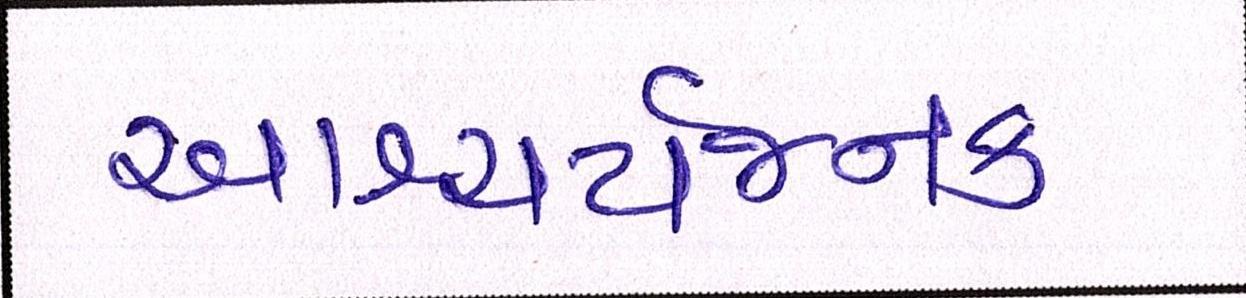 આશ્ચર્યજનક